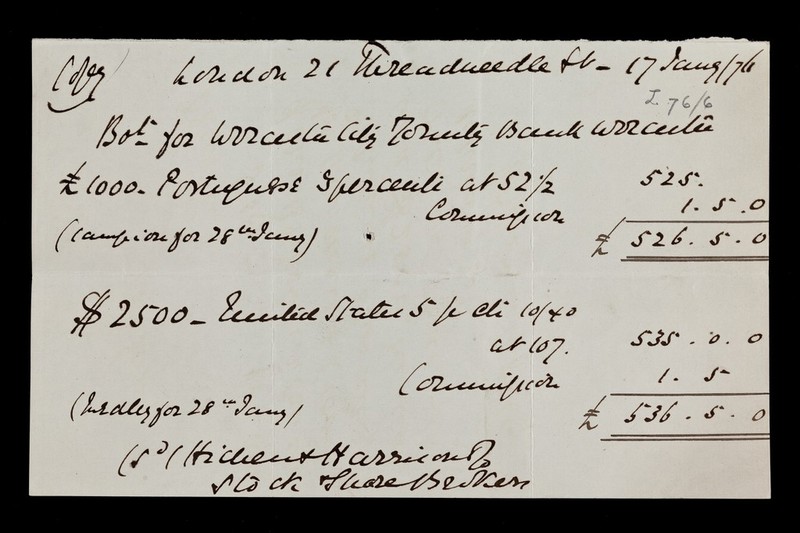 (Copy) London 21 Threadneedle St - 17 Jany/76
I. 76/6
Bot. for Worcester City & County Bank Worcester
£1000 - Portuguese 3 percents at 52 1/2 525.
Commission 1. 5. 0
(Campion for 28th Jany) £ 526. 5. 0
$2500 - United States 5 p cts 10/40
at 107. 535. 0. 0
Commission 1. 5
(for 28th Jany) £ 536. 5. 0
(sd) Hichens Harrison & Co
Stock & Share Brokers